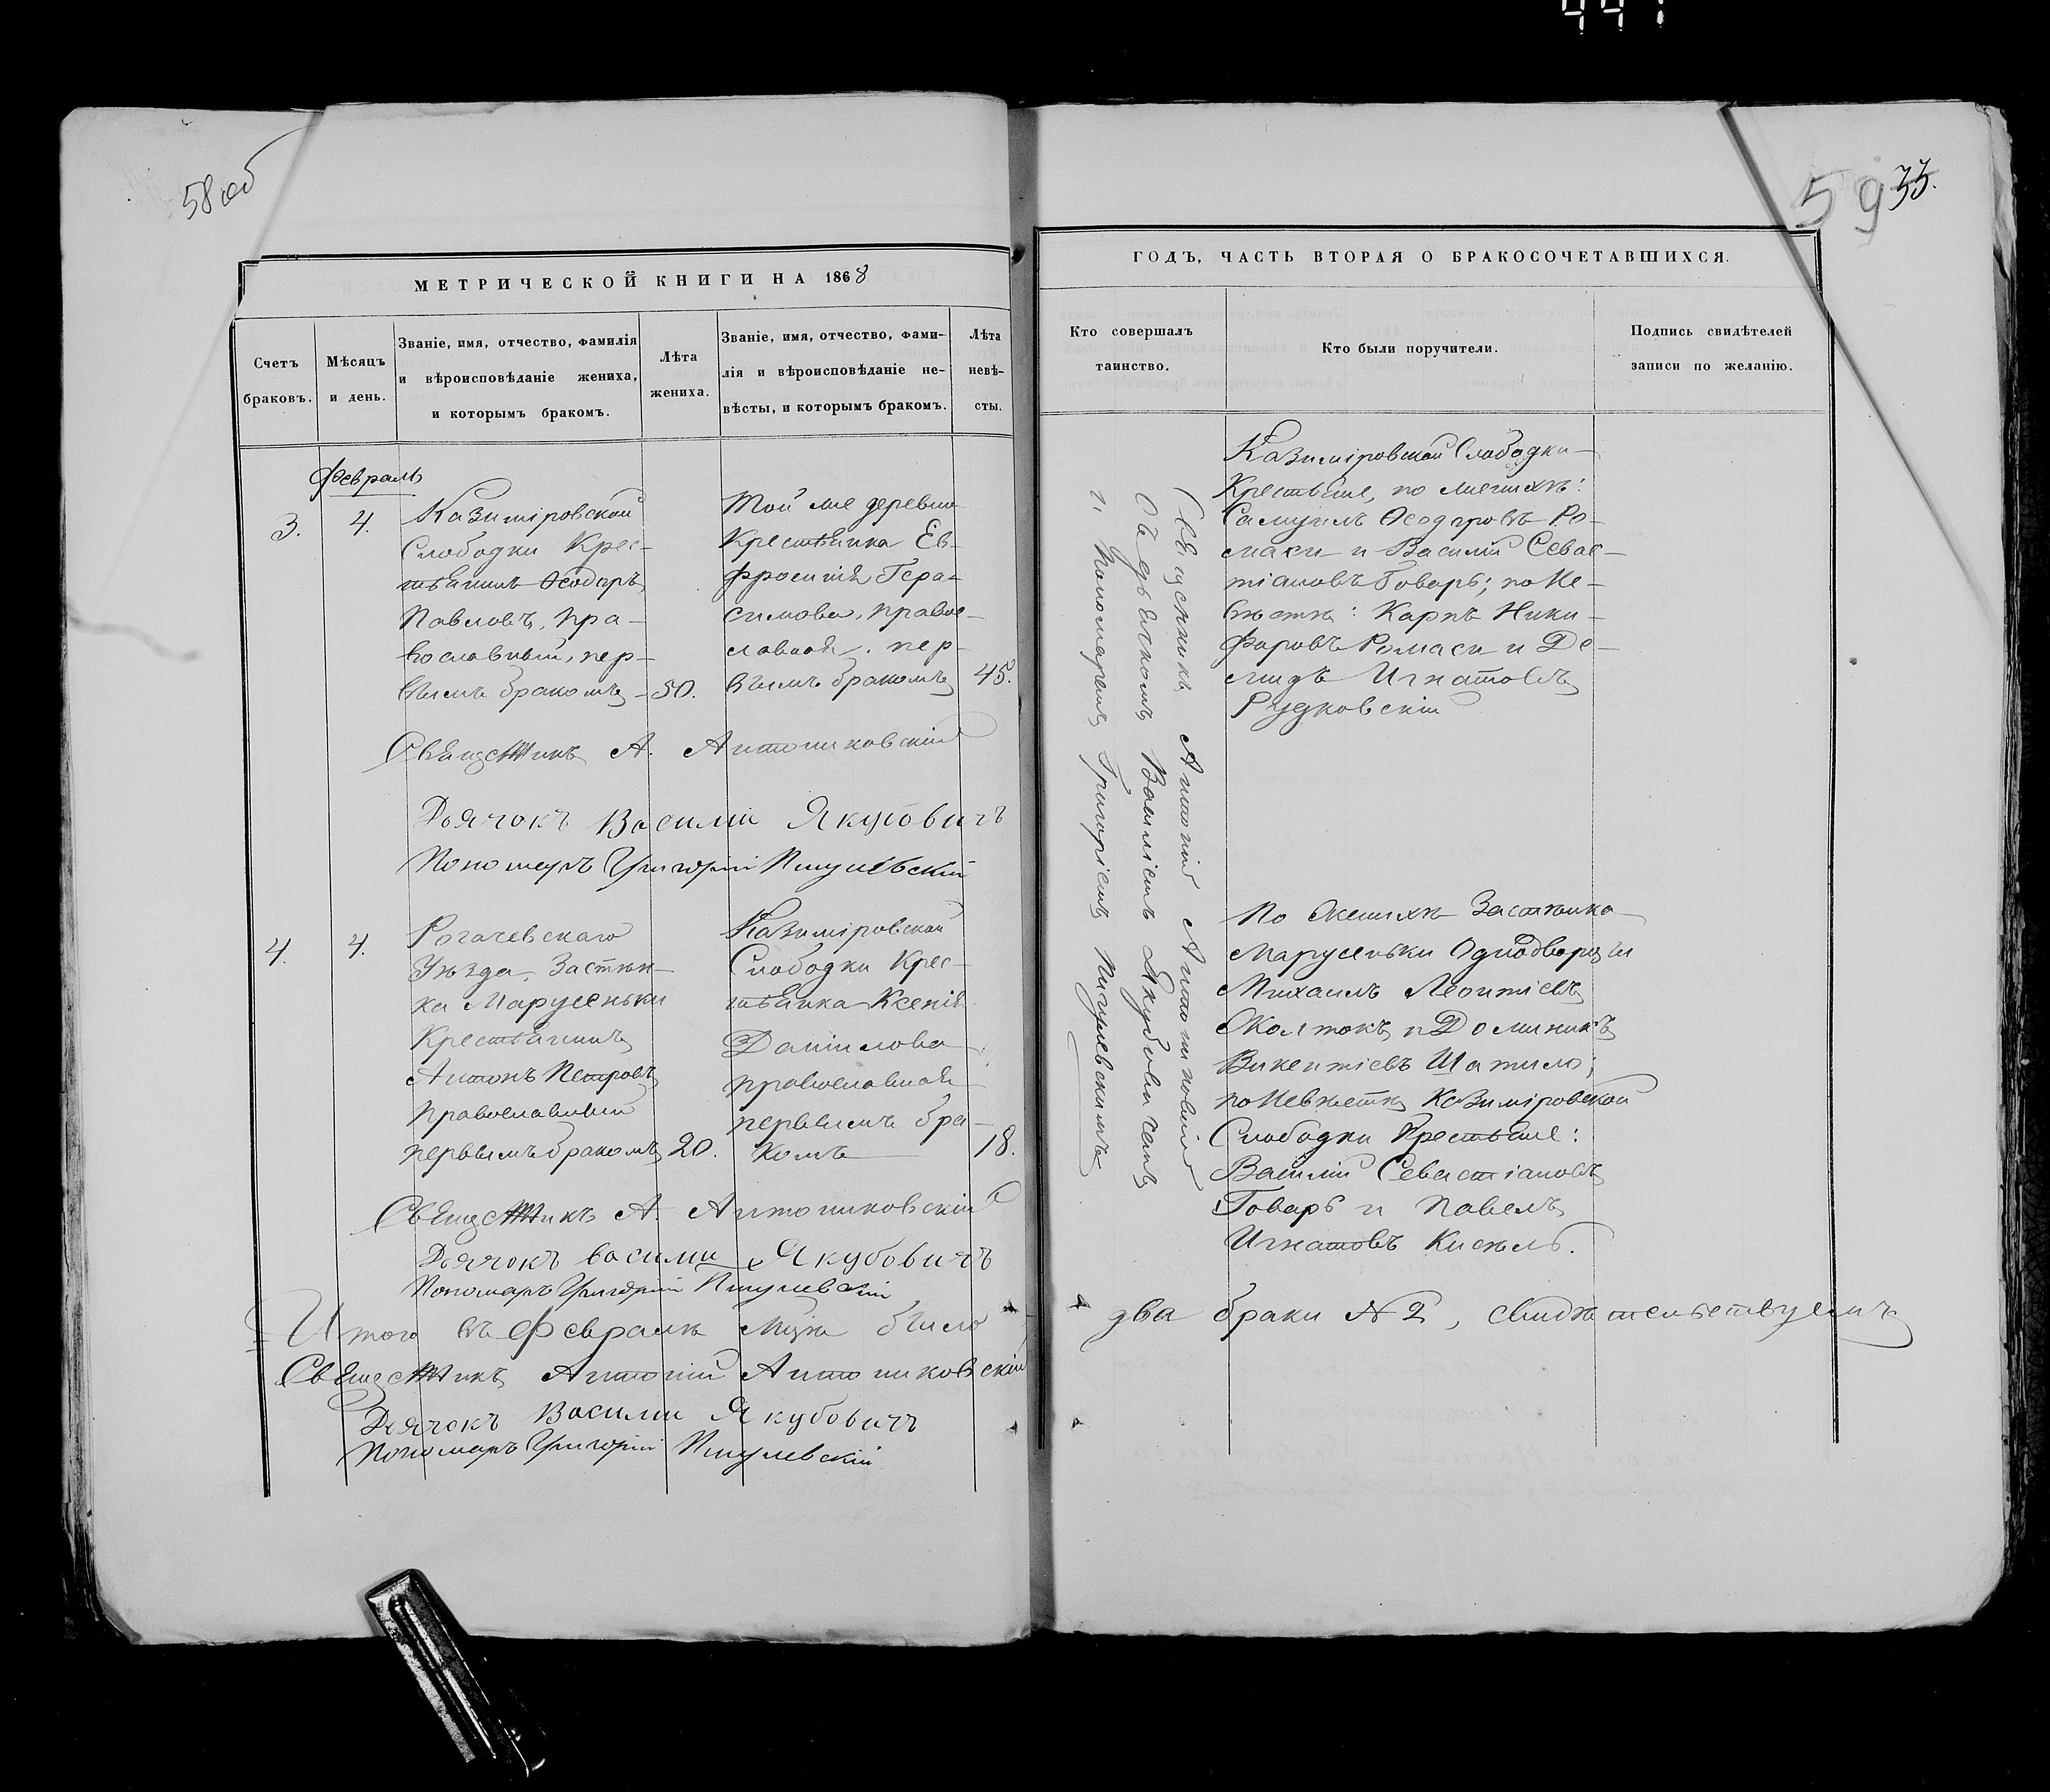 58 об
59 33.
МЕТРИЧЕСКОЙ КНИГИ НА 1868
Счетъ браковъ.
Мѣсяцъ и день.
Званіе, имя, отчество, фамилія
и вѣроисповѣданіе жениха,
и которымъ бракомъ.
Лѣта жениха.
Званіе, имя, отчество, фами-
лія и вѣроисповѣданіе не-
вѣсты, и которымъ бракомъ.
Лѣта невѣ-
сты.
Февраль
3. 4.
Казимировской
Слободки Крес-
тьянинъ Ѳеодоръ
Павловъ, пра-
вославный, пер-
вымъ бракомъ 50.
Той же деревни
Крестьянка Ев-
фросинія Гера-
симова, право-
славная, пер-
вымъ бракомъ 45.
Священникъ А. Антониковскій
Дьячокъ Василий Якубовичъ
Пономарь Григорій
4. 4.
Рогачевскаго
Уѣзда, Застѣн-
ка Марусеньки
Крестьянинъ
Антонъ Петровъ
Православный
первымъ бракомъ 20.
Казимировской
Слободки Крес-
тьянка Ксенія
Даніилова
православная
первымъ бра-
комъ 18.
Священникъ А. Антониковскій
Дьячокъ Василий Якубовичъ
Пономарь Григорій
Итого въ Февралѣ м-цѣ было
Священникъ Антоній Антониковскій
Дьячокъ Василий Якубовичъ
Пономарь Григорій
ГОДЪ, ЧАСТЬ ВТОРАЯ О БРАКОСОЧЕТАВШИХСЯ.
Кто совершалъ
таинство.
Кто были поручители.
Подпись свидѣтелей
записи по желанію.
Священникъ Антоній Антониковскій
Василіемъ Якубовичемъ
и Пономаремъ Григоріемъ
Казимировской Слободки
Крестьяне, по женихѣ:
Самуилъ Ѳеодоровъ Ро-
маси и Василій Севас-
тіановъ Товарь; по Не-
вѣстѣ: Карпъ Ники-
форовъ Ромаси и Де-
мидъ Игнатовъ
Рудковскій
По Женихѣ Застѣнка
Марусеньки Однодворцы
Михаилъ Леонтіевъ
Жолтокъ и Доминикъ
Викентіевъ Шатило;
по Невѣстѣ Казимировской
Слободки Крестьяне:
Василій Севастіановъ
Товарь и Павелъ
Игнатовъ Кисель.
два браки № 2, свидѣтельствуемъ